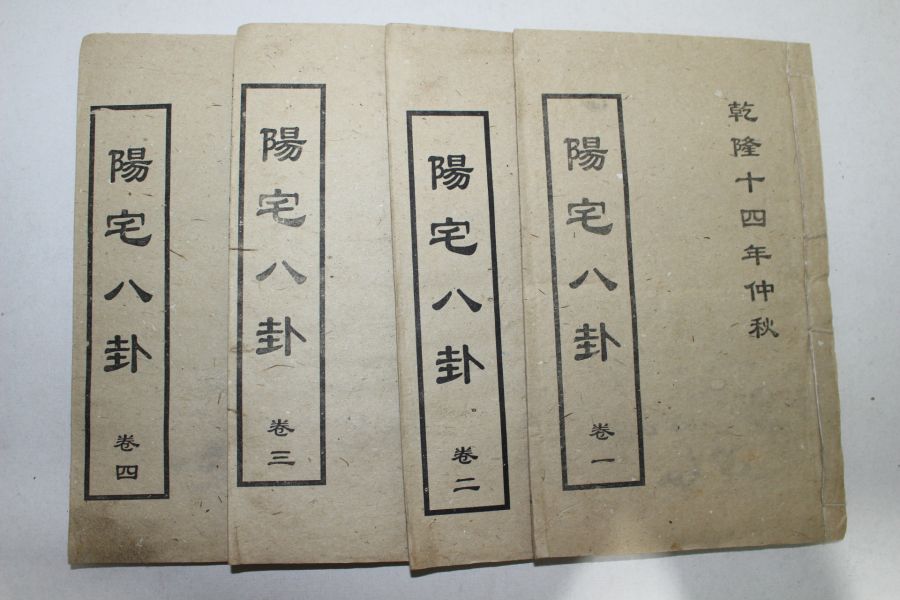 乾隆十四年仲秋
陽宅八卦
卷一
陽宅八卦
卷二
陽宅八卦
卷三
陽宅八卦
卷四